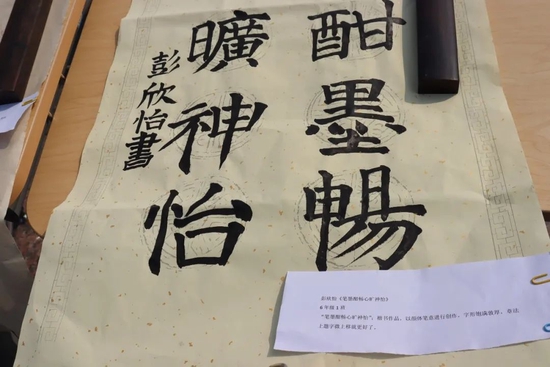 酣墨暢
曠神怡
彭欣怡書
彭欣怡《笔墨酣畅心旷神怡》
6年级1班
"笔墨酣畅心旷神怡",楷书作品,以颜体笔意进行创作,字形饱满敦厚,